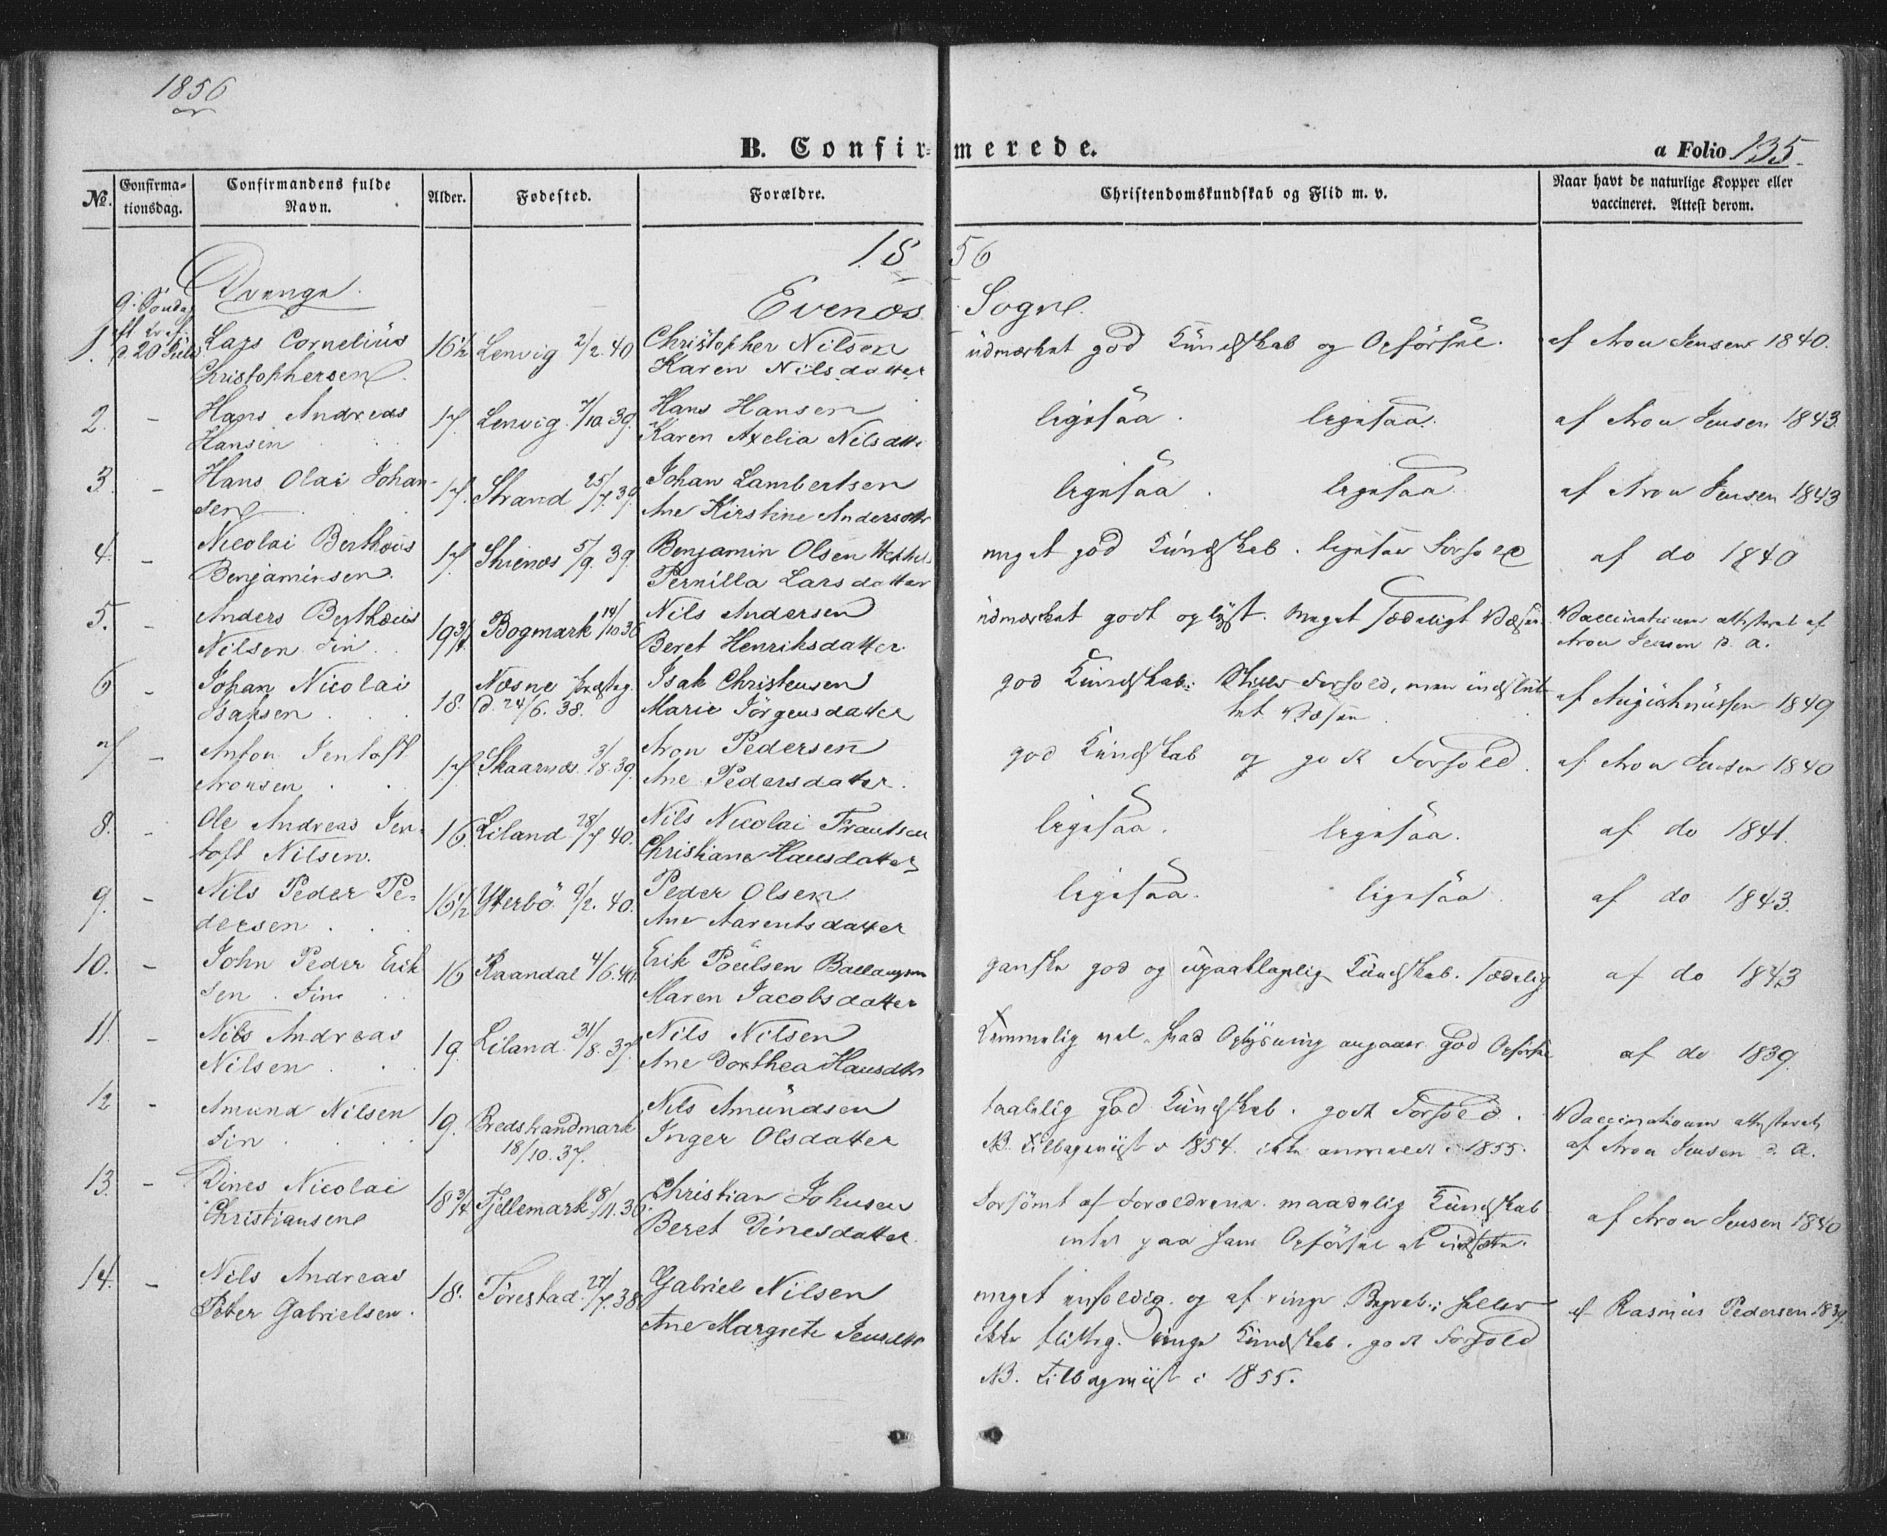 1856
B. Confirmerede.
a Folio 135.
No. Confirmationsdag. Confirmandens fulde Navn. Alder. Fødested. Forældre. Christendomskundskab og Flid m. v. Naar havt de naturlige Kopper eller vaccineret. Attest derom.
1856
Drenge. Evenæs Sogn
1. 9. Søndag eft. Lars Cornelius 16½ Lenvig 2/2.40 Christopher Nilsen udmærket god Kundskab og Opførsel. af Aron Jensen 1840.
Christophersen Karen Nilsdatter
2. - Hans Andreas 17. Lenvig 7/10.39. Hans Hansen ligesaa. ligesaa. af Aron Jensen 1843.
Hansen Karen Axelia Nilsdttr
3. - Hans Olai Johan- 17. Strand 25/7.39. Johan Lambertsen ligesaa. ligesaa af Aron Jensen 1843
sen Ane Kirstine Andersdttr
4. - Nicolai Berthæus 17. Skienæs 5/9.39. Benjamin Olsen meget god Kundskab. ligesaa Forhold af do 1840
Benjaminsen. Pernilla Larsdatter
5. - Anders Berthæus 19¾ Bogmark 14/10 36 Nils Andersen udmærket godt oplyst. Meget sædeligt Væsen Vaccinationen attesteret af
Nilsen Fin. Beret Henriksdatter Aron Jensen s. a.
6 - Johan Nicolai 18. Næsne Præsteg. Isak Christensen god Kundskab. Stille Forhold, men indslut-
Isaksen d. 24/6.38. Marie Jørgensdatter tet Væsen 1849
7 - Anton Jentoft 17 Skaarnæs 3/8.39. Aron Pedersen god Kundskab og godt Forhold. af Aron Jensen 1840
Aronsen Ane Pedersdatter.
8. - Ole Andreas Jen- 16. Liland 28/7 40. Nils Nicolai Frantsen ligesaa. ligesaa. af do 1841.
toft Nilsen. Christiane Hansdatter
9. - Nils Peder Pe- 16½ Ytterbö 9/2.40. Peder Olsen ligesaa. ligesaa. af do 1843.
dersen Ane Aarentsdatter
10. - John Peder Erik 16 Raandal 4/6.40. Erik Poulsen Ballangen ganske god og upaaklagelig Kundskab. sædelig af do 1843
sen. Fin Maren Jacobsdatter
11. - Nils Andreas 19. Liland 31/8.37. Nils Nilsen temmelig vel hvad Oplysning angaaer. God Opførsel af do 1839.
Nilsen Ane Dorthea Hansdttr
12 - Amund Nilsen 19. Bredstrandmark Nils Amundsen taalelig god Kundskab. godt Forhold. Vaccinationen attesteret
Fin 18/10.37. Inger Olsdatter NB. tilbageviist i 1854. ikke anmeldt i 1855. af Aron Jensen s. a.
13. - Dines Nicolai 18¾ Fjellemark 8/11.36. Christian Johnsen forsømt af Forældrene. maadelig Kundskab af Aron Jensen 1840
Christiansen Beret Dinesdatter. intet paa hans Opførsel at udsætte.
14. - Nils Andreas 18. Törestad 27/7.38 Gabriel Nilsen meget enfoldig og af ringe Begreb; heller af Rasmus Pedersen 1839
Peter Gabrielsen. Ane Margrete Jensdttr ikke flittig. ringe Kundskab. godt Forhold
NB. tilbageviist i 1855.